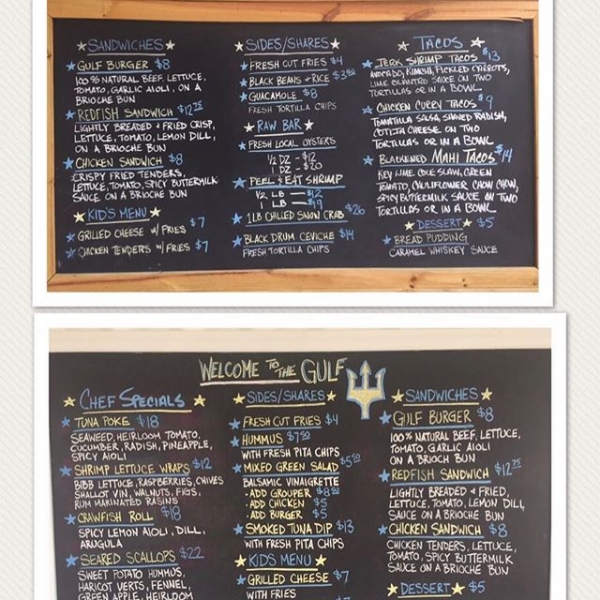 SANDWICHES
GULF BURGER $8
100% NATURAL BEEF, LETTUCE,
TOMATO, GARLIC AIOLI, ON A
BRIOCHE BUN
REDFISH SANDWICH $12.75
LIGHTLY BREADED + FRIED CRISP,
LETTUCE, TOMATO, LEMON DILL,
ON A BRIOCHE BUN
CHICKEN SANDWICH $8
CRISPY FRIED TENDERS,
LETTUCE, TOMATO, SPICY BUTTERMILK
SAUCE ON A BRIOCHE BUN
KID'S MENU
GRILLED CHEESE W/ FRIES $7
CHICKEN TENDERS W/ FRIES $7
SIDES/SHARES
FRESH CUT FRIES $4
BLACK BEANS + RICE
GUACAMOLE $8
FRESH TORTILLA CHIPS
RAW BAR
FRESH LOCAL OYSTERS
1/2 DZ - $12
1 DZ - $20
PEEL + EAT SHRIMP
1/2 LB - $12
1 LB - $19
1LB CHILLED SNOW CRAB $26
BLACK DRUM CEVICHE $14
FRESH TORTILLA CHIPS
TACOS
JERK SHRIMP TACOS $13
AVOCADO, KIMCHI, PICKLED CARROTS,
LIME CILANTRO SAUCE ON TWO
TORTILLAS OR IN A BOWL
CHICKEN CURRY TACOS $9
TOMATILLA SALSA, SHAVED RADISH,
COTIJA CHEESE ON TWO
TORTILLAS OR IN A BOWL
BLACKENED MAHI TACOS $14
KEY LIME COLE SLAW, GREEN
TOMATO, CAULIFLOWER CHOW CHOW,
SPICY BUTTERMILK SAUCE ON TWO
TORTILLAS OR IN A BOWL
DESSERT $5
BREAD PUDDING
CARAMEL WHISKEY SAUCE
WELCOME TO THE GULF
CHEF SPECIALS
TUNA POKE $18
SEAWEED, HEIRLOOM TOMATO,
CUCUMBER, RADISH, PINEAPPLE,
SPICY AIOLI
SHRIMP LETTUCE WRAPS $12
BIBB LETTUCE, RASPBERRIES, CHIVES
SHALLOT VIN, WALNUTS, FIGS,
RUM MARINATED RAISINS
CRAWFISH ROLL $18
SPICY LEMON AIOLI, DILL,
ARUGULA
SEARED SCALLOPS $22
SWEET POTATO HUMMUS,
HARICOT VERTS, FENNEL,
GREEN APPLE, HEIRLOOM
SIDES/SHARES
FRESH CUT FRIES $4
HUMMUS $7.50
WITH FRESH PITA CHIPS
MIXED GREEN SALAD $5.50
BALSAMIC VINAIGRETTE
-ADD GROUPER
-ADD CHICKEN $5
-ADD BURGER $5
SMOKED TUNA DIP $13
WITH FRESH PITA CHIPS
KIDS MENU
GRILLED CHEESE $7
WITH FRIES
SANDWICHES
GULF BURGER $8
100% NATURAL BEEF, LETTUCE,
TOMATO, GARLIC AIOLI
ON A BRIOCH BUN
REDFISH SANDWICH $12.75
LIGHTLY BREADED + FRIED,
LETTUCE, TOMATO, LEMON DILL,
SAUCE ON A BRIOCHE BUN
CHICKEN SANDWICH $8
CHICKEN TENDERS, LETTUCE,
TOMATO, SPICY BUTTERMILK
SAUCE ON A BRIOCHE BUN
DESSERT $5